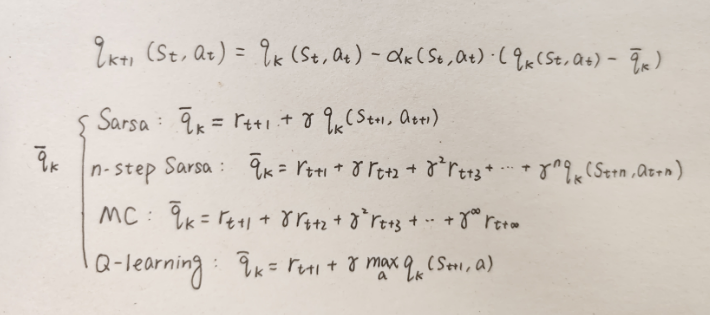 q_{k+1}(s_t, a_t) = q_k(s_t, a_t) - α_k(s_t, a_t) · (q_k(s_t, a_t) - q̄_k)
Sarsa: q̄_k = r_{t+1} + γ q_k(s_{t+1}, a_{t+1})
q̄_k { n-step Sarsa: q̄_k = r_{t+1} + γ r_{t+2} + γ² r_{t+3} + ··· + γⁿ q_k(s_{t+n}, a_{t+n})
MC: q̄_k = r_{t+1} + γ r_{t+2} + γ² r_{t+3} + ·· + γ^∞ r_{t+∞}
Q-learning: q̄_k = r_{t+1} + γ max_a q_k(s_{t+1}, a)